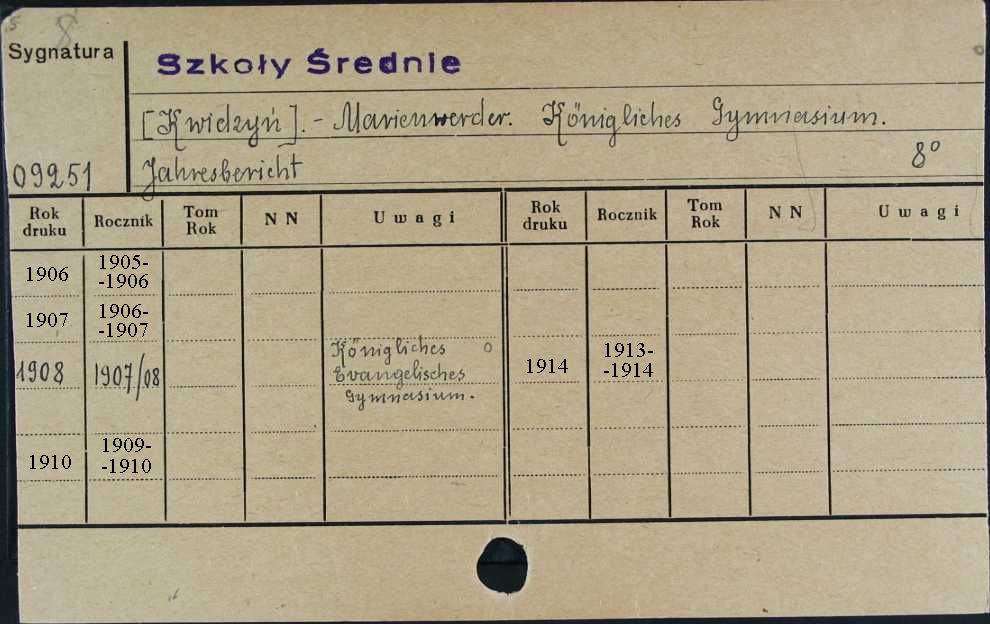 5 8
Sygnatura
Szkoły Średnie
[Kwidzyń]. - Marienwerder. Königliches Gymnasium.
8°
09251 Jahresbericht
Rok druku Rocznik Tom Rok NN Uwagi Rok druku Rocznik Tom Rok NN Uwagi
1906 1905-
-1906
1907 1906-
-1907
1908 1907/08 Königliches
Evangelisches
Gymnasium.
1914 1913-
-1914
1910 1909-
-1910